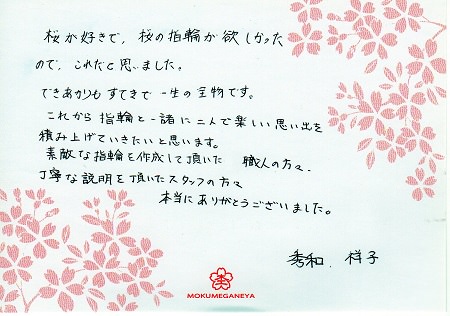 桜が好きで、桜の指輪が欲しかった
ので、これだと思いました。
できあがりもすてきで一生の宝物です。
これから指輪と一諸に二人で楽しい思い出を
積み上げていきたいと思います。
素敵な指輪を作成して頂いた 職人の方々、
丁寧な説明を頂いたスタッフの方々
本当にありがとうございました。
秀和、祥子
MOKUMEGANEYA